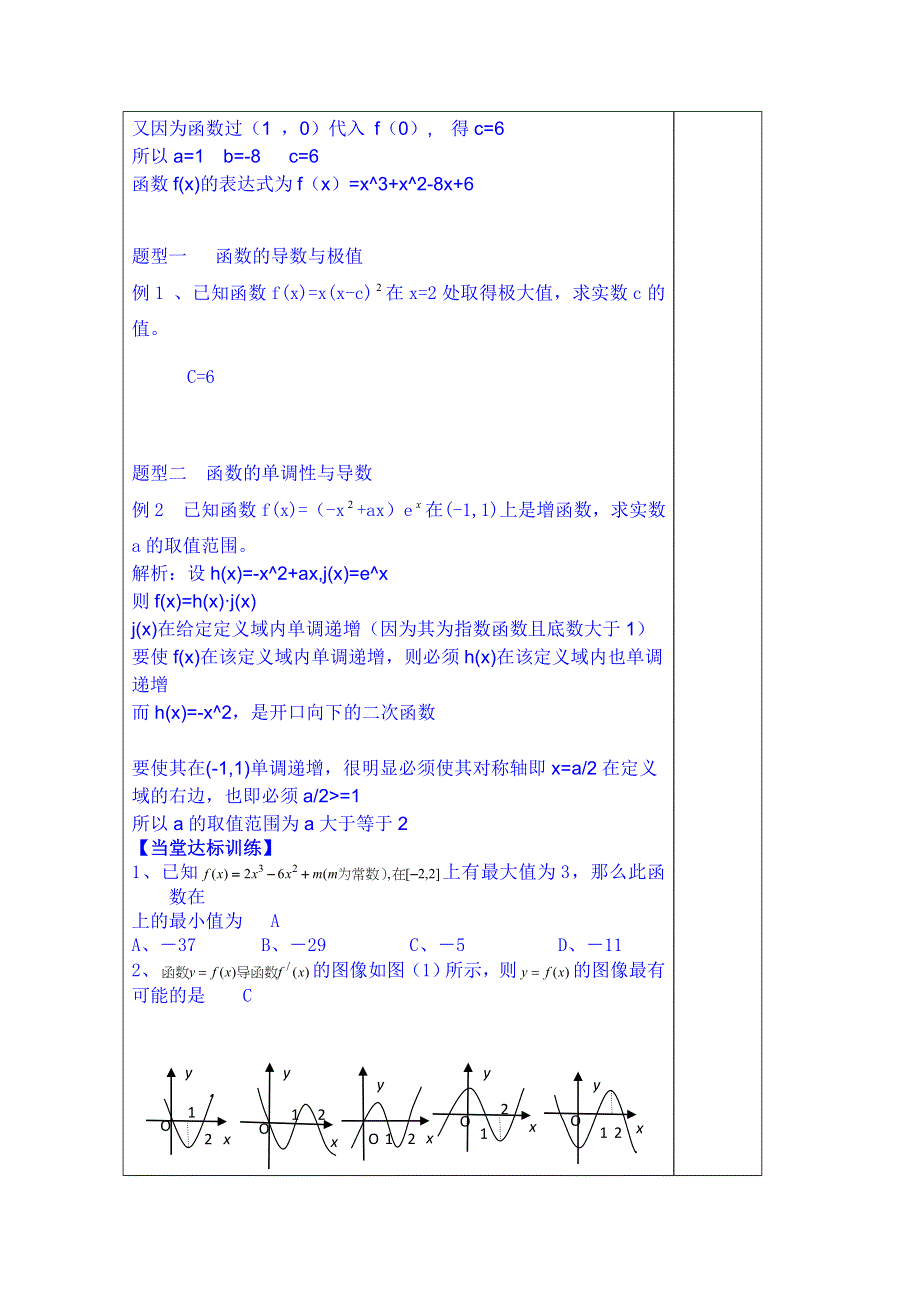 又因为函数过（1 ，0）代入 f（0）,  得c=6
所以a=1  b=-8   c=6
函数f(x)的表达式为f（x）=x^3+x^2-8x+6
题型一   函数的导数与极值
例1 、已知函数f(x)=x(x-c)²在x=2处取得极大值，求实数c的
值。
C=6
题型二  函数的单调性与导数
例2  已知函数f(x)=（-x²+ax）eˣ在(-1,1)上是增函数，求实数
a的取值范围。
解析：设h(x)=-x^2+ax,j(x)=e^x
则f(x)=h(x)·j(x)
j(x)在给定定义域内单调递增（因为其为指数函数且底数大于1）
要使f(x)在该定义域内单调递增，则必须h(x)在该定义域内也单调
递增
而h(x)=-x^2，是开口向下的二次函数
要使其在(-1,1)单调递增，很明显必须使其对称轴即x=a/2在定义
域的右边，也即必须a/2>=1
所以a的取值范围为a大于等于2
【当堂达标训练】
1、已知f(x)=2x³-6x²+m(m为常数),在[-2,2]上有最大值为3，那么此函
数在
上的最小值为   A
A、－37   B、－29   C、－5   D、－11
2、函数y=f(x)导函数f′(x)的图像如图(1)所示，则y=f(x)的图像最有
可能的是   C
y O 1 2 x
y O 1 2 x
y O 1 2 x
y O 1 2 x
y O 1 2 x